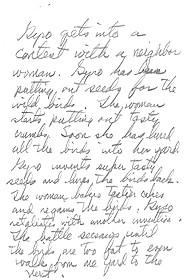 Gyro gets into a
contest with a neighbor
woman. Gyro has been
putting out seeds for the
wild birds. The woman
starts putting out tasty
crumbs. Soon she has lured
all the birds into her yard.
Gyro invents super tasty
seeds and lures the birds back.
The woman bakes tastier cakes
and regains the birds. Gyro
retaliates with another invention.
The battle seesaws until
the birds are too fat to even
walk from one yard to the
next.